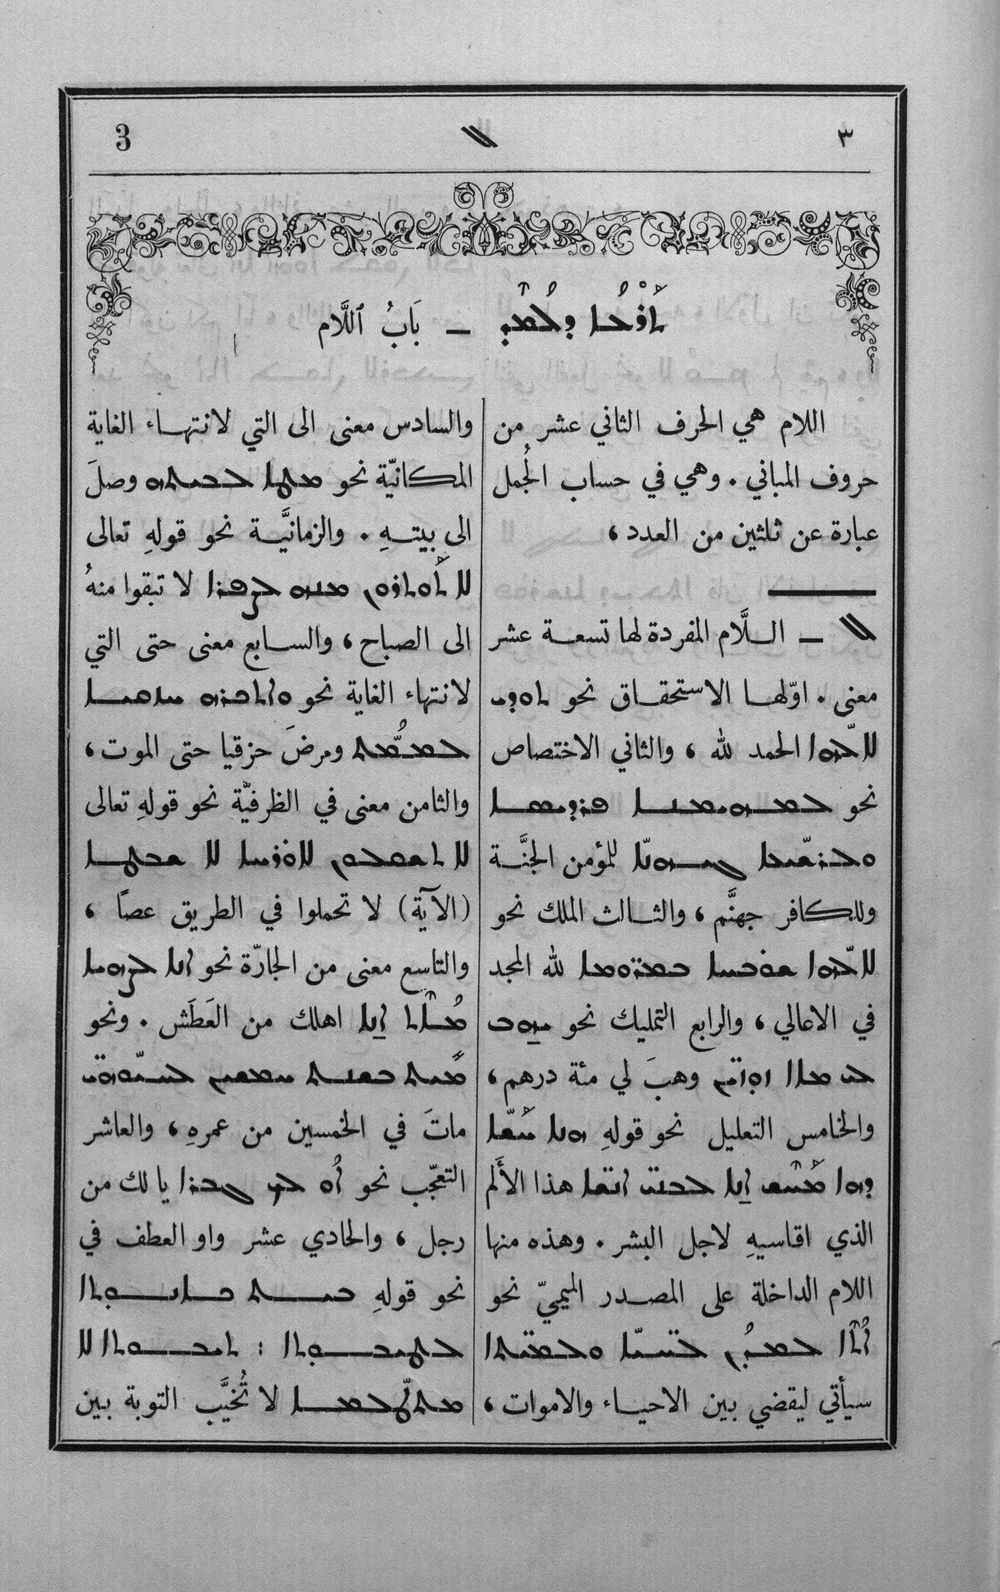 3 ܠ ٣
ܬܰܪܥܳܐ ܕܠܳܡܰܕ — بَابُ ٱللَّام
اللام هي الحرف الثاني عشر من
حروف المباني . وهي في حساب الجُمل
عبارة عن ثلثين من العدد ،
ܠ — الـلَّام المفردة لها تسعـة عشر
معنى . اوّلهـا الاستحقـاق نحو ܬܘܕܝ
ܠܐܠܗܐ الحمد لله ، والثاني الاختصاص
نحو ܠܡܗܝܡܢܐ ܦܪܕܝܣܐ
ܘܠܪܫܝܥܐ ܓܝܗܢܐ للمؤمن الجنَّـة
وللكافر جهنَّم ، والثالث الملك نحو
ܠܐܠܗܐ ܫܘܒܚܐ ܒܡܪܘܡܐ لله المجد
في الاعالي ، والرابع التمليك نحو ܝܗܒ
ܠܝ ܡܐܐ ܙܘܙܝܢ وهبَ لي مئة درهم ،
والخامس التعليل نحو قولهِ ܗܢܐ ܚܰܫܐ
ܕܗܐ ܚܳܐܫ ܐܢܐ ܠܒܢܝ ܐܢܫܐ هذا الأَلم
الذي اقاسيهِ لاجل البشر . وهذه منها
اللام الداخلة على المصدر الميميّ نحو
ܐܳܬܐ ܠܡܕܳܢ ܠܚܝܐ ܘܠܡܝܬܐ
سيأتي ليقضي بين الاحيـاء والاموات ،
والسادس معنى الى التي لانتهاء الغاية
المكانيّة نحو ܡܛܐ ܠܒܝܬܗ وصلَ
الى بيتـهِ . والزمانيَّـة نحو قولهِ تعالى
ܠܐ ܬܘܬܪܘܢ ܡܢܗ ܠܨܦܪܐ لا تبقوا منهُ
الى الصباح ، والسابع معنى حتى التي
لانتهاء الغاية نحو ܘܐܬܟܪܗ ܚܙܩܝܐ
ܠܡܡܳܬ ومرضَ حزقيا حتى الموت ،
والثامن معنى في الظرفيّة نحو قولهِ تعالى
ܠܐ ܬܫܩܠܘܢ ܠܐܘܪܚܐ ܠܐ ܫܒܛܐ
(الآية) لا تحملوا في الطريق عصاً ،
والتاسع معنى من الجارّة نحو ܐܢܐ ܠܨܗܝܐ
ܡܳܐܬ ܐܢܐ اهلك من العَطَش . ونحو
ܡܝܬ ܒܫܢܬ ܚܡܫܝܢ ܠܚܝܘܗܝ
ماتَ في الخمسين من عمرهِ ، والعاشر
التعجّب نحو ܐܳܘ ܠܟ ܓܒܪܐ يا لك من
رجل ، والحادي عشر واو العطف في
نحو قولهِ
لا تُخيَّب التوبة بين